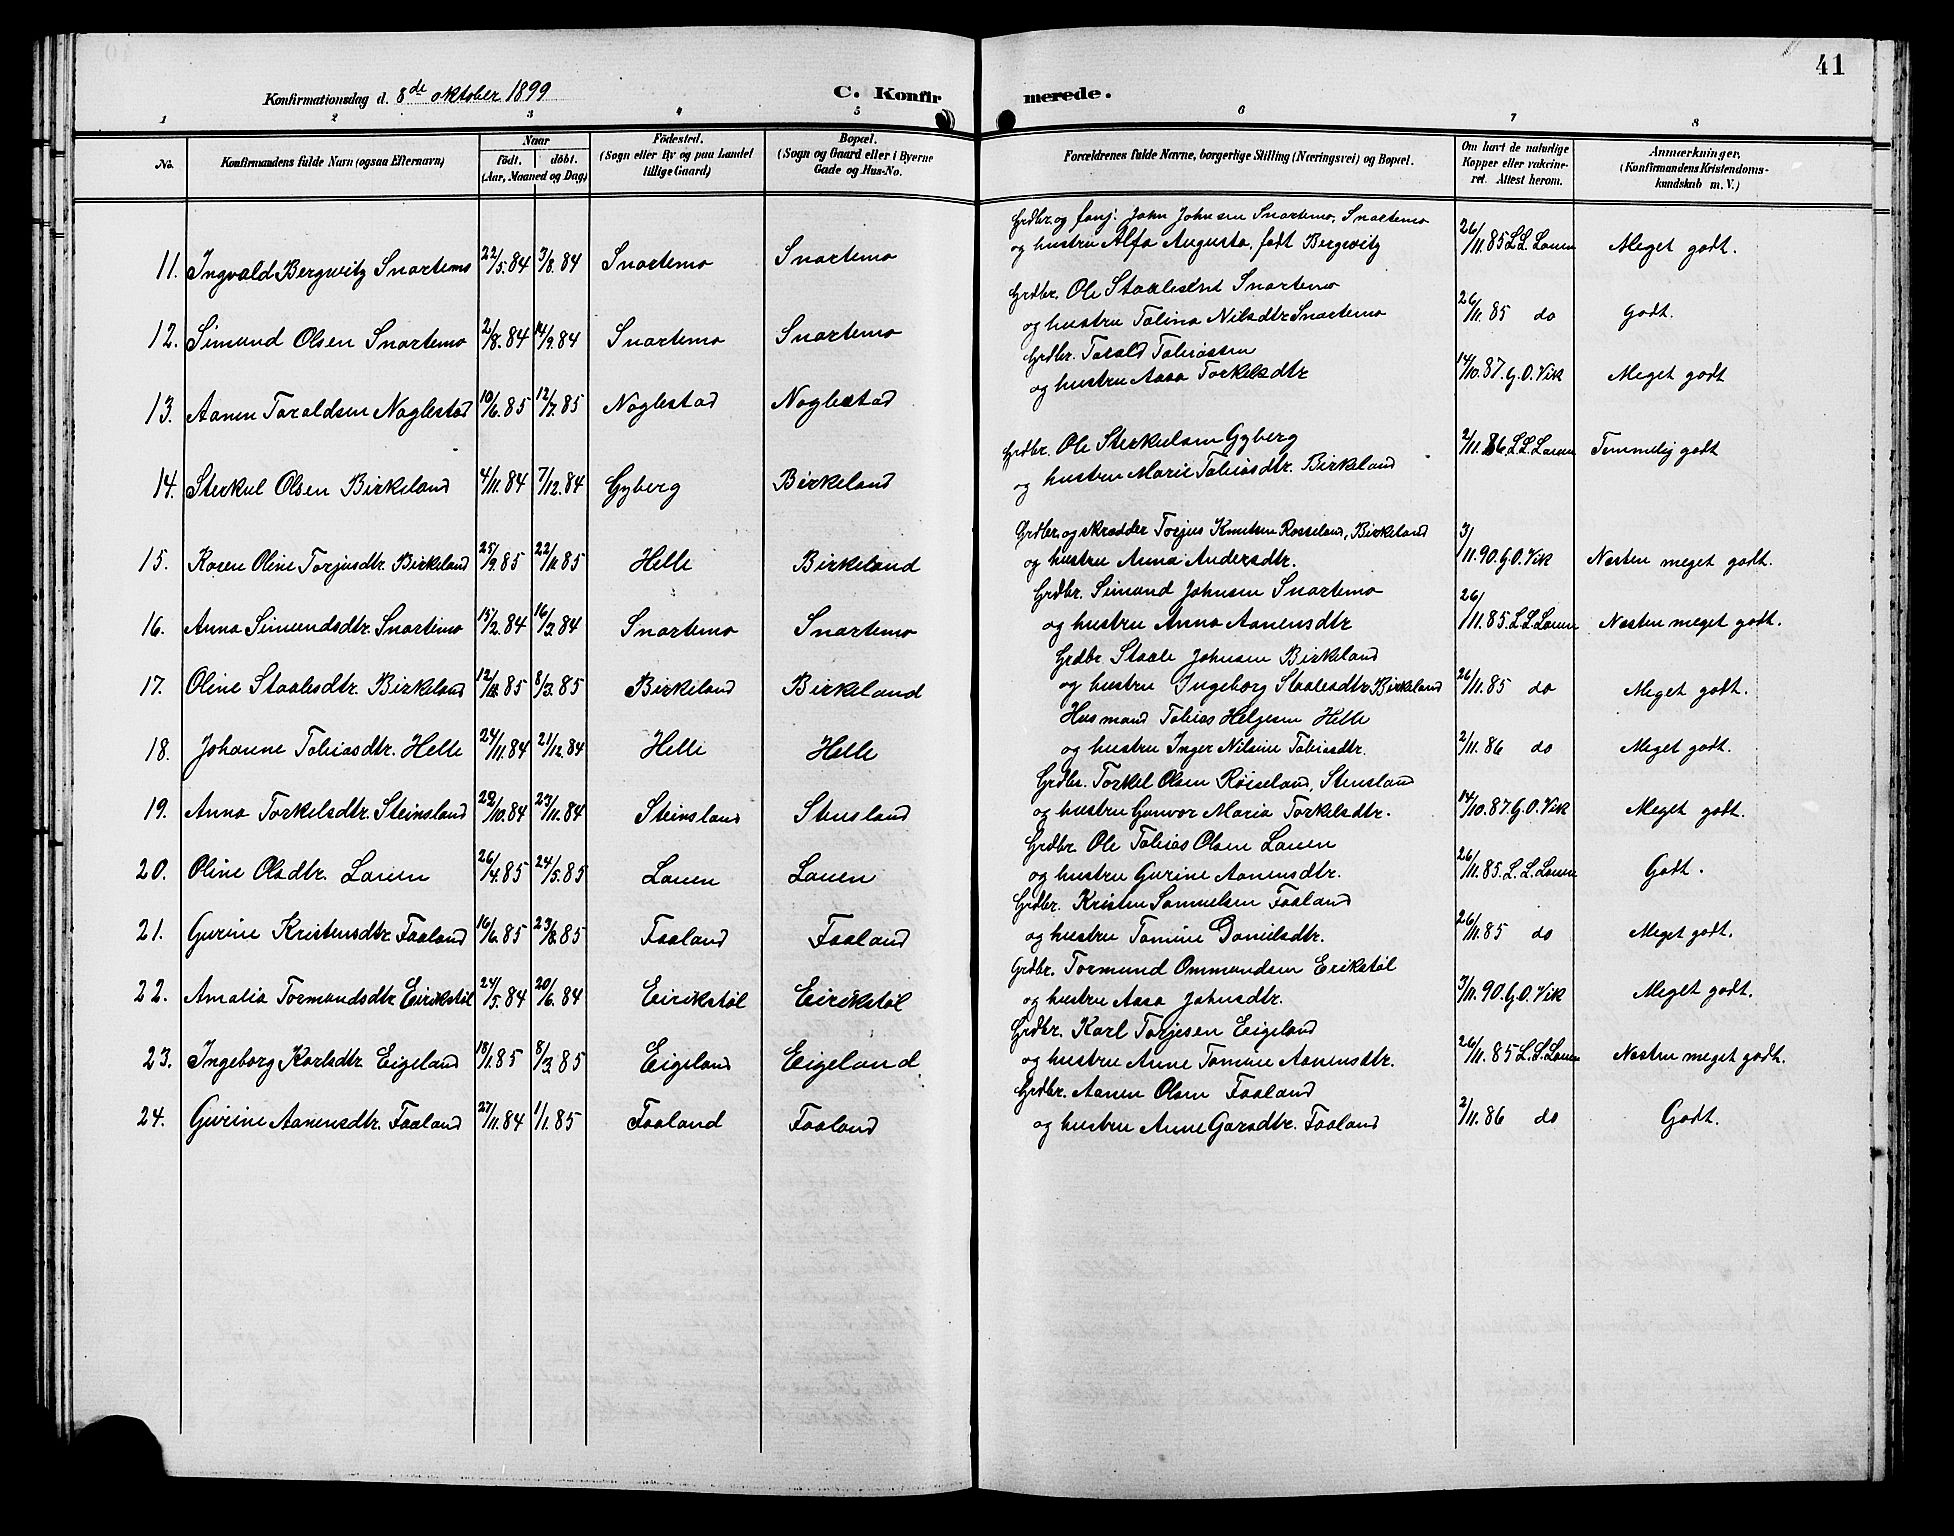 41
Konfirmationsdag d. 8de oktober 1899
C. Konfirmerede.
1 2 3 4 5 6 7 8
No. Konfirmandens fulde Navn (ogsaa Efternavn) Naar födt. döbt. (Aar, Maaned og Dag) Födested. (Sogn eller By og paa Landet tillige Gaard) Bopæl. (Sogn og Gaard eller i Byerne Gade og Hus-No. Forældrenes fulde Navne, borgerlige Stilling (Næringsvei) og Bopæl. Om havt de naturlige Kopper eller vakcineret. Attest herom. Anmærkninger. (Konfirmandens Kristendomskundskab m. V.)
Grdbr. og fanj. John Johnsen Snartemo, Snartemo
11. Ingvald Bergwitz Snartemo 22/5.84 3/8.84 Snartemo Snartemo og hustru Alfa Augusta, født Bergwitz 26/11.85 L.L. Lauen Meget godt.
Grdbr. Ole Staalesen Snartemo
12. Simund Olsen Snartemo 2/8.84 14/9.84 Snartemo Snartemo og hustru Talina Nilsdtr Snartemo 26/11.85 do Godt.
Grdbr. Tarald Tobiassen
13. Aanen Taraldsen Naglestad 10/6.85 12/7.85 Naglestad Naglestad og hustru Aasa Torkelsdtr 14/10.87. G.O. Vik Meget godt
Grdbr. Ole Sterkulsen Gyberg
14. Sterkul Olsen Birkeland 4/11.84 7/12.84 Gyberg Birkeland og hustru Marie Tobiasdtr. Birkeland 2/11.86 L.L. Lauen Temmelig godt
Grdbr. og skrædder Torjus Knutsen Rosseland, Birkeland
15. Karen Oline Torjusdtr. Birkeland 25/9.85 22/11.85 Helle Birkeland og hustru Anna Andersdtr. 3/11.90. G.O. Vik Næsten meget godt.
Grdbr. Simund Johnsen Snartemo
16. Anna Simundsdtr. Snartemo 15/2.84 16/3.84 Snartemo Snartemo og hustru Anna Aanensdtr 26/11.85. L.L. Lauen Næsten meget godt.
Grdbr Staale Johnsen Birkeland
17. Oline Staalesdtr. Birkeland 85 8/3.85 Birkeland Birkeland og hustru Ingeborg Staalesdtr Birkeland 26/11.85 do Meget godt.
Husmand Tobias Helgesen Helle
18. Johanne Tobiasdtr. Helle 24/11.84 21/12.84 Helle Helle og hustru Inger Nilsine Tobiasdtr. 2/11.86 do Meget godt.
Grdbr. Torkel Olsen Røiseland, Stensland
19. Anna Torkelsdtr. Steinsland 22/10.84 23/11.84 Steinsland Stensland og hustru Gunvor Maria Torkelsdtr. 14/10.87 G.O. Vik Meget godt.
Grdbr. Ole Tobias Olsen Lauen
20. Oline Olsdtr. Lauen 26/4.85 24/5.85 Lauen Lauen og hustru Gurine Aanensdtr. 26/11.85. L.L. Lauen Godt.
Grdbr. Kristen Samuelsen Faaland
21. Gurine Kristensdtr. Faaland 16/6.85 23/8.85 Faaland Faaland og hustru Tomine Danielsdtr. 26/11.85 do Meget godt.
Grdbr. Tormund Ommundsen Erikstøl
22. Amalia Tormundsdtr Eirikstøl 24/5.84 20/6.84 Eirikstøl Eirikstøl og hustru Aasa Johnsdtr. 3/11.90. G.O. Vik Meget godt.
Grdbr. Karl Torjesen Eigeland
23. Ingeborg Karlsdtr. Eigeland 18/1.85 8/3.85 Eigeland Eigeland og hustru Anne Tomine Aanensdtr. 26/11.85 L.L. Lauen Næsten meget godt.
Grdbr. Aanen Olsen Faaland
24. Gurine Aanensdtr. Faaland 27/11.84 1/1.85 Faaland Faaland og hustru Anne Garsdtr. Faaland 2/11.86 do Godt.